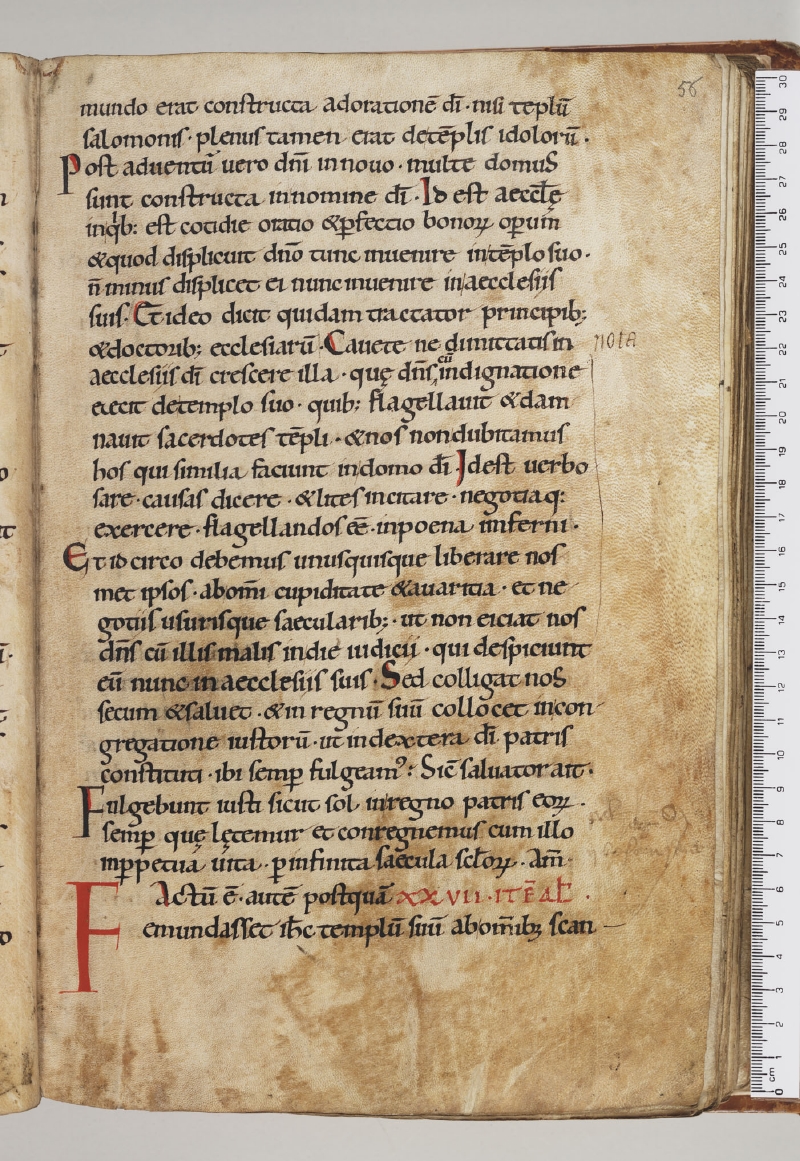 56
mundo erat constructa adorationē dī · nisi teplū
salomonis · plenus tamen erat detēplis idolorū ·
Post aduentū uero dnī innouo · multe domus
sunt constructa innomine dī · Id est aecclę
inqb: est cotidie oratio &pfectio bonoꝝ opum
&quod displicuit dnō tunc inuenire intēplo suo ·
n̄ minus displicet ei nunc inuenire inaecclesiis
suis · Et ideo dicit quidam tractator principib;
&doctorib; ecclesiarū · Cauete ne dimittatis in
nota
aecclesiis dī crescere illa · quę dn̄s cū indignatione
eiecit detemplo suo · quib: flagellauit &dam
nauit sacerdotes tēpli · &nos nondubitamus
hos qui similia faciunt indomo dī Idest uerbo
sare · causas dicere · &lites incitare · negotiaq:
exercere · flagellandos eē · inpoena imferni ·
Et idcirco debemus unusquisque liberare nos
met ipsos · abom̄i cupiditate &auaritia · et ne
gotiis usurisque saecularib; · ut non eiciat nos
dn̄s cū illis malis indie iudicii · qui despiciunt
eū nunc inaecclesiis suis · Sed colligat nos
secum &saluet · &in regnū suū collocet incon
gregatione iustorū · ut indextera dī patris
constituti · ibi semp fulgeamꝰ · Sic̄ saluator ait ·
Fulgebunt iusti sicut sol inregno patris eoꝝ ·
semp quę lętemur et conregnemus cum illo
inppetua uita · p infinita saecula sclōꝝ · Am̄
Factū ē · autē postquā XXVII · ITĒ AL ·
emundasset ih̄c templū suū abom̄ibꝫ scan